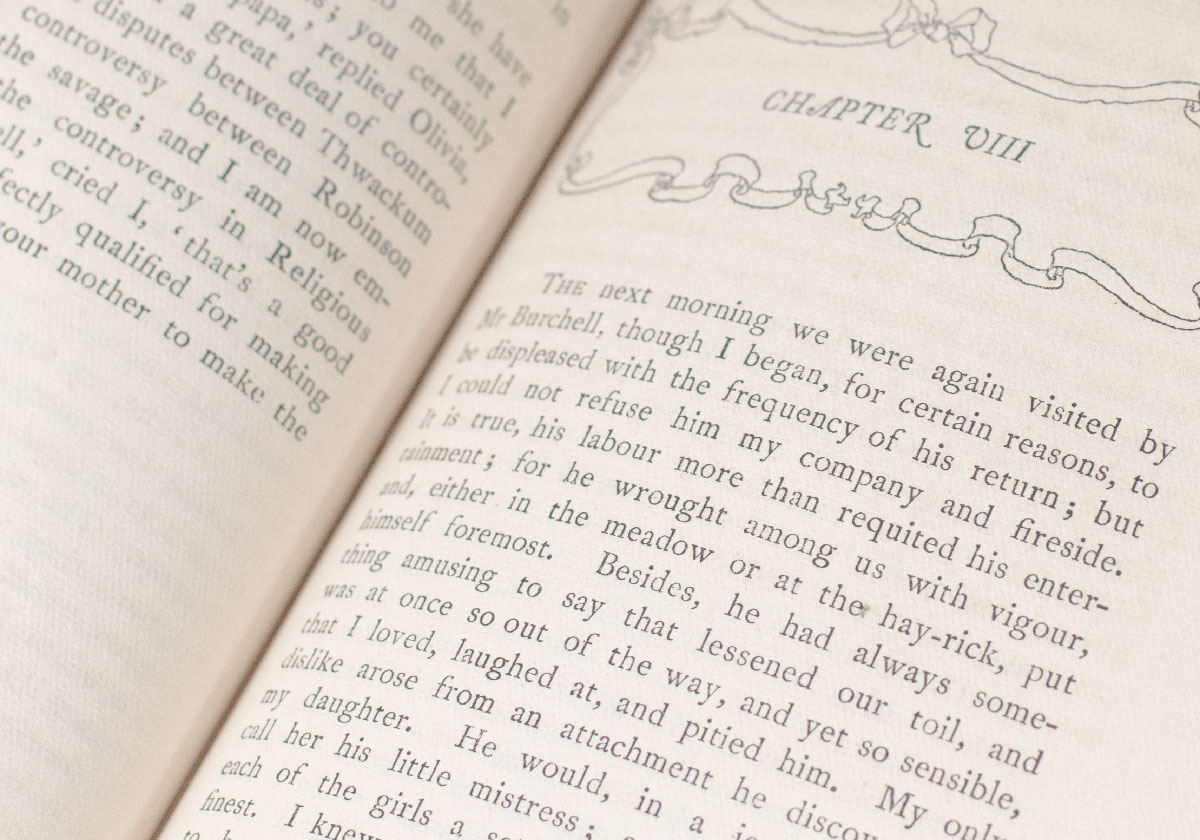 in
she have
to me that I
; you certainly
papa,' replied Olivia,
a great deal of contro-
disputes between Thwackum
controversy between Robinson
the savage; and I am now em-
the controversy in Religious
cried I, 'that's a good
qualified for making
your mother to make the
CHAPTER VIII
THE next morning we were again visited by
Mr Burchell, though I began, for certain reasons, to
be displeased with the frequency of his return; but
I could not refuse him my company and fireside.
It is true, his labour more than requited his enter-
rainment; for he wrought among us with vigour,
and, either in the meadow or at the hay-rick, put
himself foremost. Besides, he had always some-
thing amusing to say that lessened our toil, and
was at once so out of the way, and yet so sensible,
that I loved, laughed at, and pitied him. My only
dislike arose from an attachment he
my daughter. He would, in a
call her his little mistress;
each of the girls a
finest. I knew
to